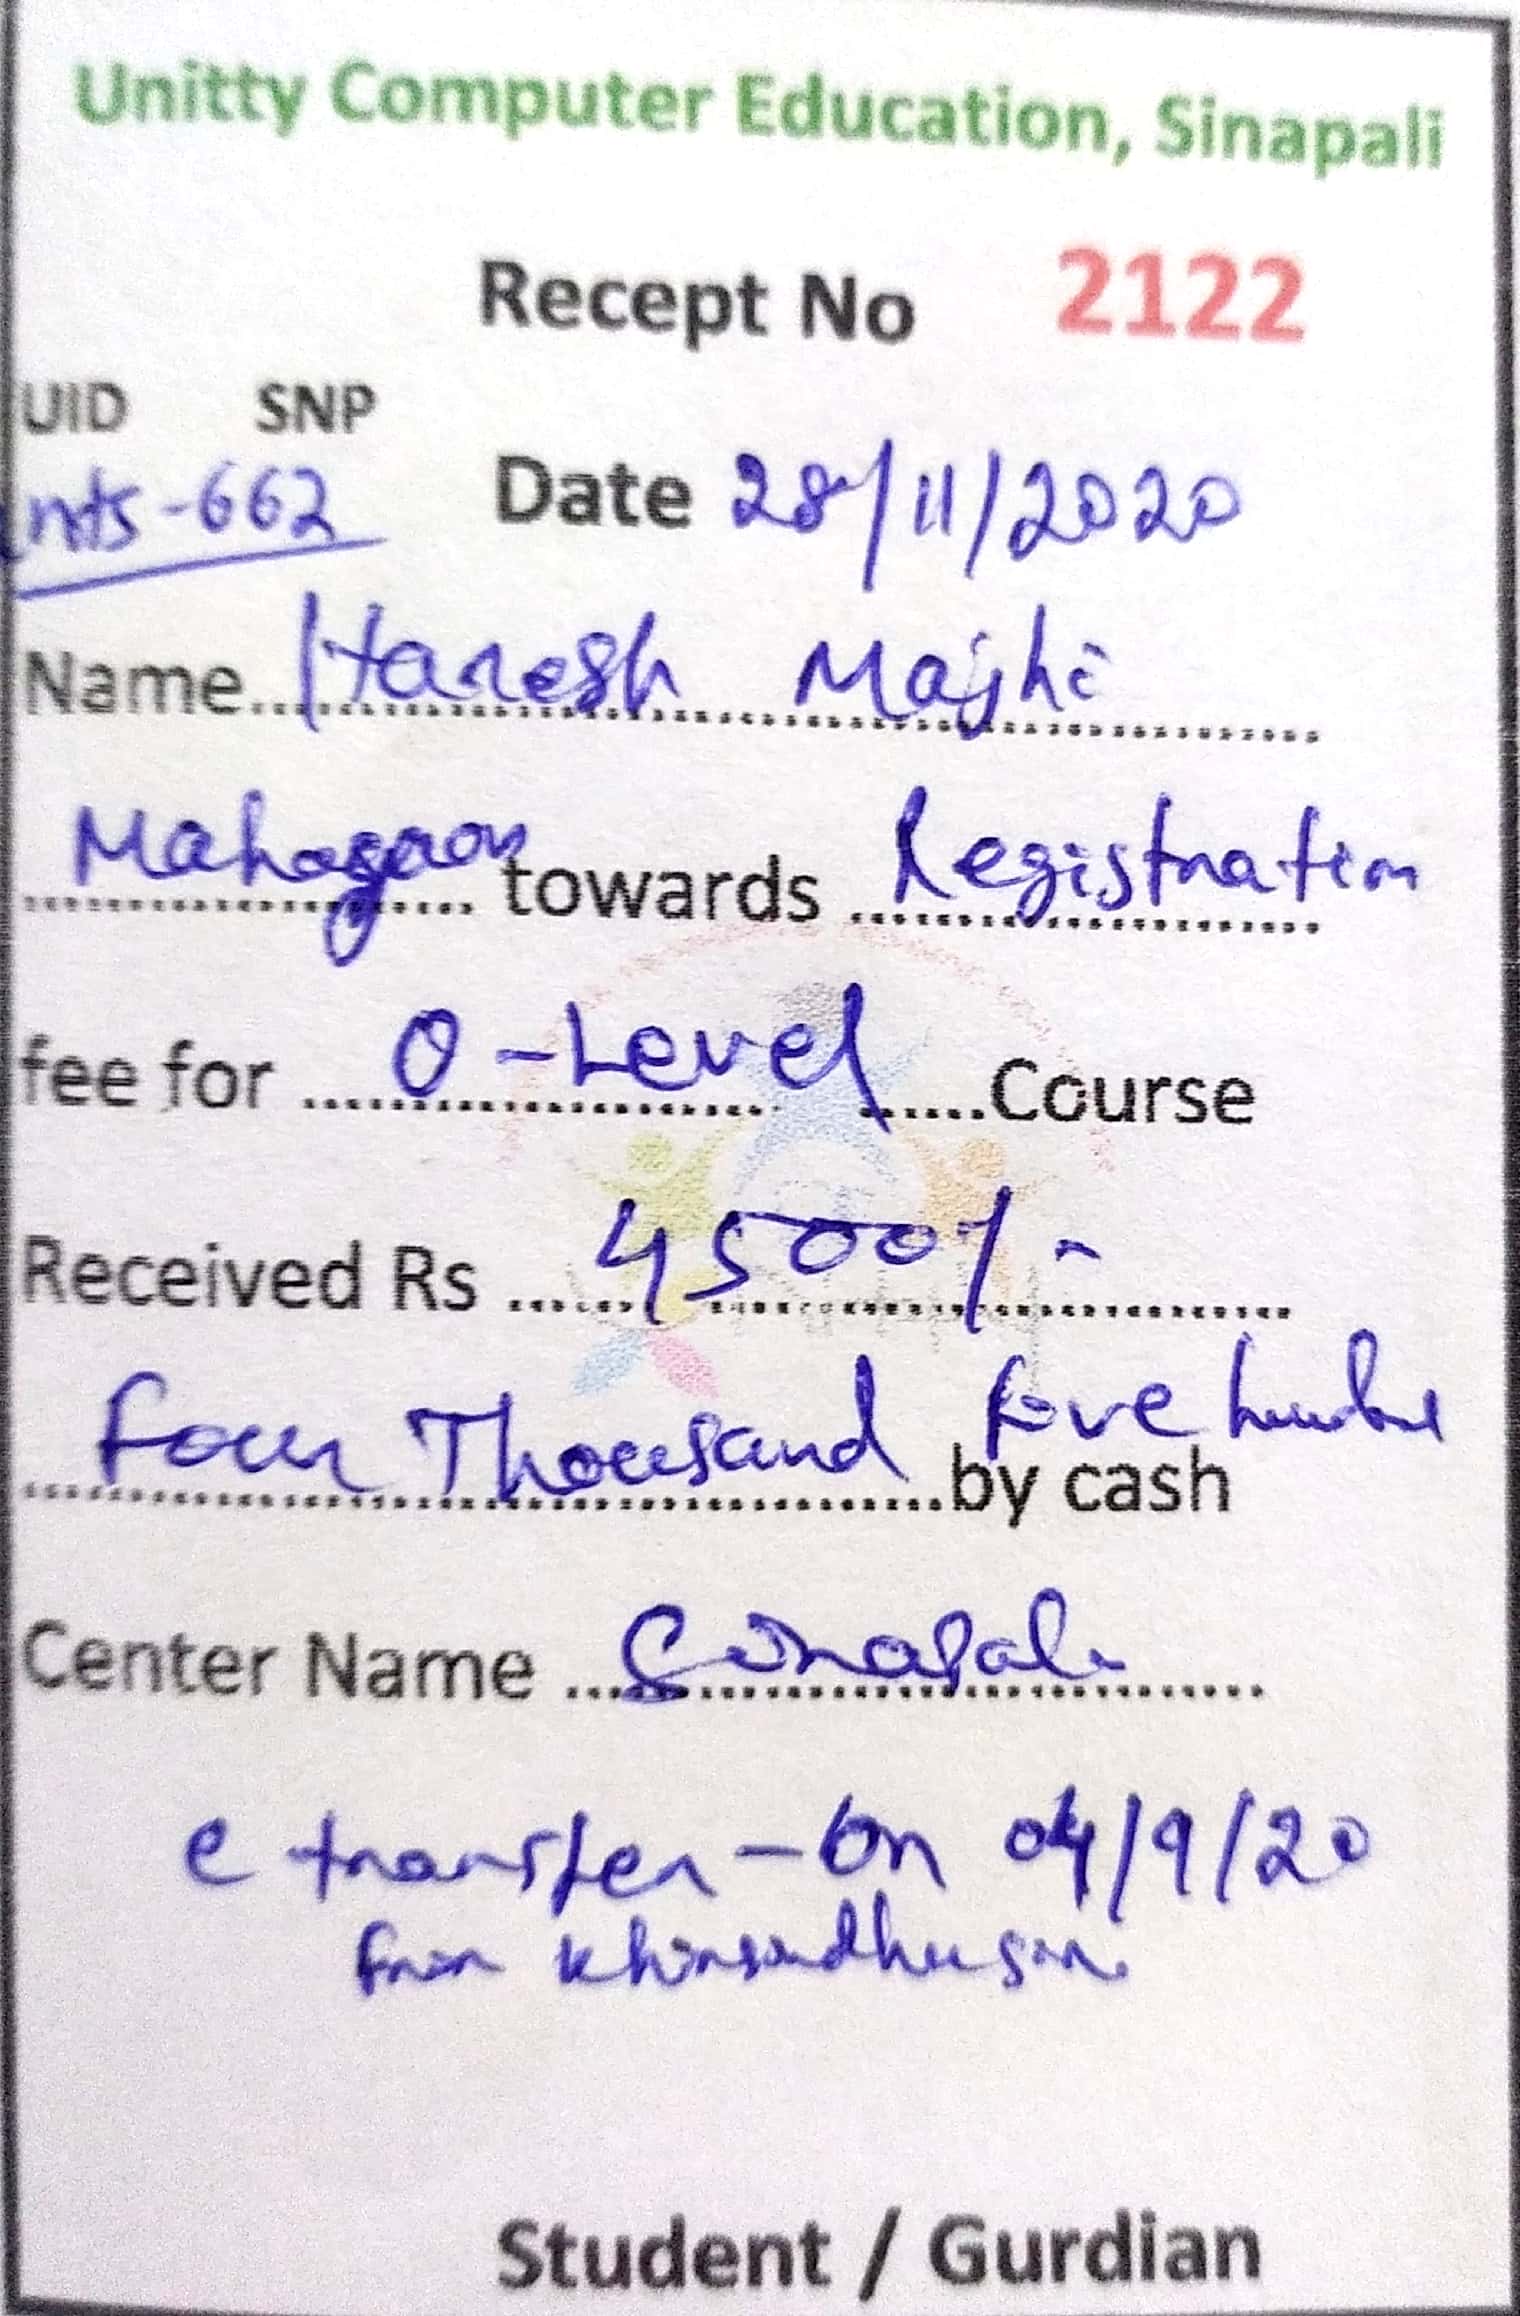 Unitty Computer Education, Sinapali
Recept No 2122
UID SNP
nts-662 Date 28/11/2020
Name Haresh Majhi
Mahagaon towards Registration
fee for O-Level Course
Received Rs 4500/-
Four Thousand five
by cash
Center Name Sinapali
e transfer - On 04/9/20
from
Student / Gurdian